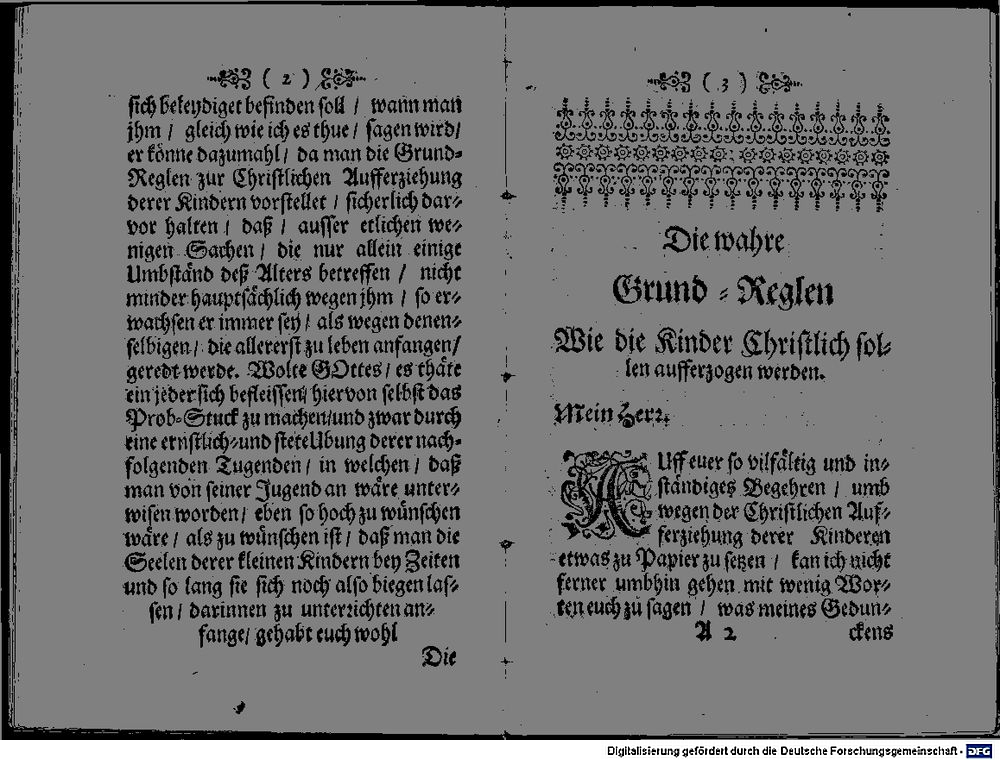 ( 2 )
sich beleydiget befinden soll / wann man
jhm / gleich wie ich es thue / sagen wird/
er könne dazumahl / da man die Grund-
Reglen zur Christlichen Aufferziehung
derer Kindern vorstellet / sicherlich dar-
vor halten / daß / ausser etlichen we-
nigen Sachen / die nur allein einige
Umbständ deß Alters betreffen / nicht
minder hauptsächlich wegen jhm / so er-
wachsen er immer sey / als wegen denen-
selbigen / die allererst zu leben anfangen/
geredt werde. Wolte GOttes / es thäte
ein jeder sich befleissen/ hiervon selbst das
Prob-Stuck zu machen/und zwar durch
eine ernstlich-und stete Ubung derer nach-
folgenden Tugenden / in welchen / daß
man von seiner Jugend an wäre unter-
wisen worden/ eben so hoch zu wünschen
wäre / als zu wünschen ist / daß man die
Seelen derer kleinen Kindern bey Zeiten
und so lang sie sich noch also biegen las-
sen / darinnen zu unterrichten an-
fange/ gehabt euch wohl
Die
( 3 )
Die wahre
Grund-Reglen
Wie die Kinder Christlich sol-
len aufferzogen werden.
Mein Herr.
AUff euer so vilfältig und in-
ständiges Begehren / umb
wegen der Christlichen Auf-
ferziehung derer Kinderen
etwas zu Papier zu setzen / kan ich nicht
ferner umbhin gehen mit wenig Wor-
ten euch zu sagen / was meines Gedun-
A 2 ckens
Digitalisierung gefördert durch die Deutsche Forschungsgemeinschaft - DFG